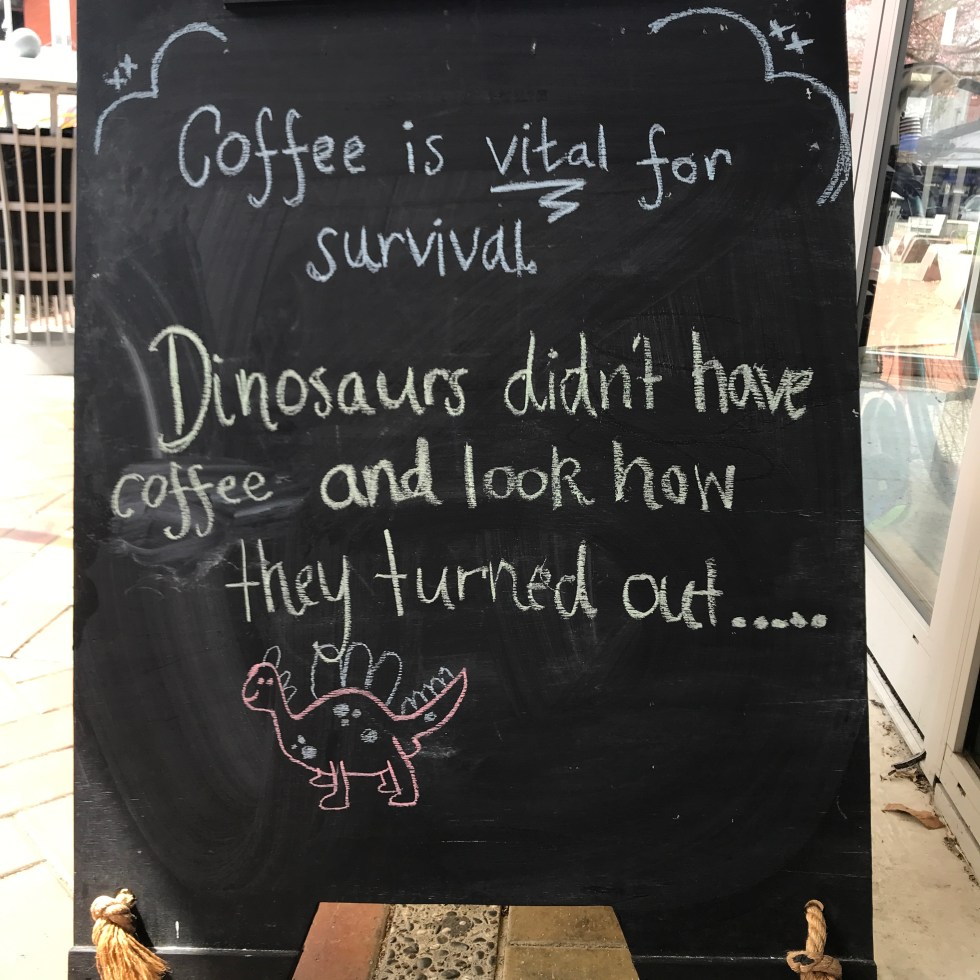 Coffee is vital for
survival.
Dinosaurs didn't have
coffee and look how
they turned out.....